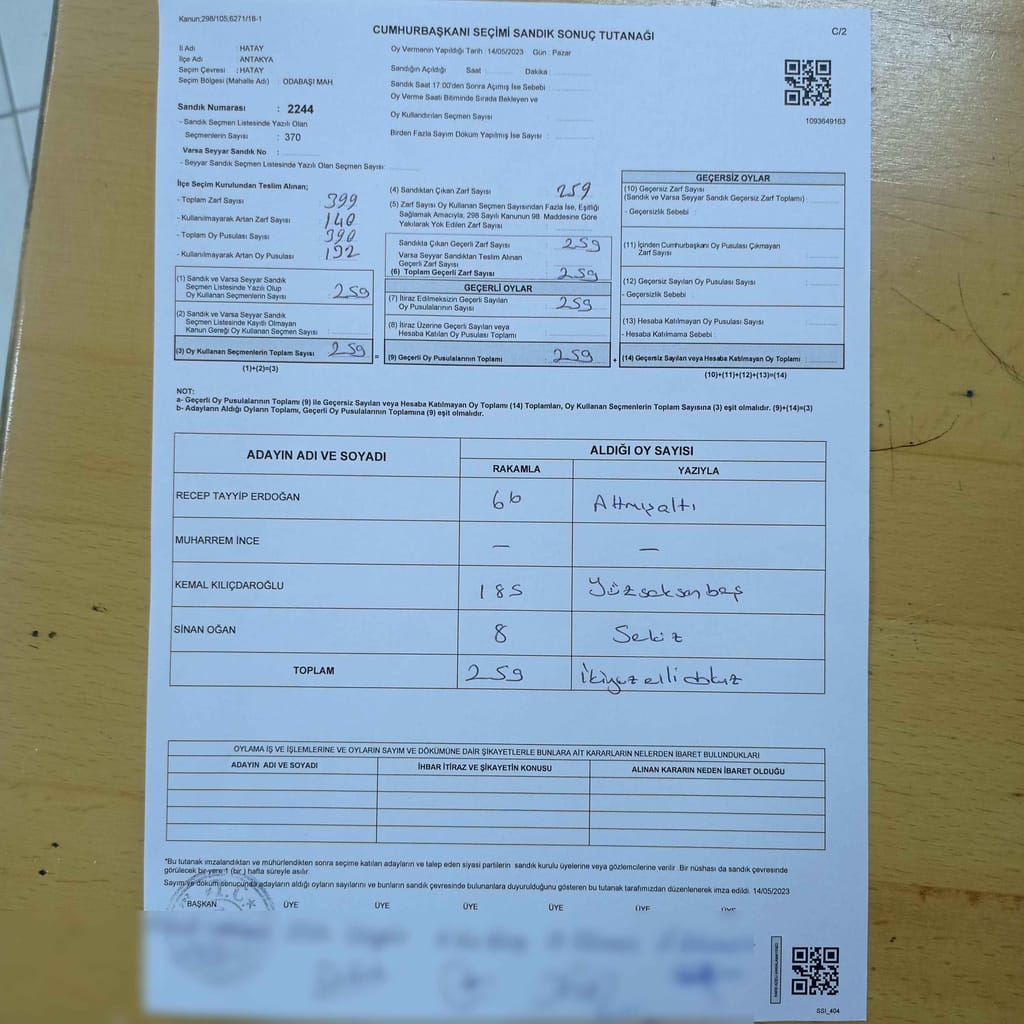 Kanun;298/105;6271/16-1
CUMHURBAŞKANI SEÇİMİ SANDIK SONUÇ TUTANAĞI
C/2
İl Adı : HATAY
İlçe Adı : ANTAKYA
Seçim Çevresi : HATAY
Seçim Bölgesi (Mahalle Adı) : ODABAŞI MAH
Oy Vermenin Yapıldığı Tarih : 14/05/2023 Gün : Pazar
Sandığın Açıldığı Saat : Dakika :
Sandık Saat 17:00'den Sonra Açımış İse Sebebi :
Oy Verme Saati Bitiminde Sırada Bekleyen ve
Oy Kullandırılan Seçmen Sayısı :
Birden Fazla Sayım Döküm Yapılmış İse Sayısı :
1093649163
Sandık Numarası : 2244
- Sandık Seçmen Listesinde Yazılı Olan
Seçmenlerin Sayısı : 370
Varsa Seyyar Sandık No :
- Seyyar Sandık Seçmen Listesinde Yazılı Olan Seçmen Sayısı:
İlçe Seçim Kurulundan Teslim Alınan;
- Toplam Zarf Sayısı : 399
- Kullanılmayarak Artan Zarf Sayısı : 140
- Toplam Oy Pusulası Sayısı : 390
- Kullanılmayarak Artan Oy Pusulası : 192
(1) Sandık ve Varsa Seyyar Sandık
Seçmen Listesinde Yazılı Olup
Oy Kullanan Seçmenlerin Sayısı : 259
(2) Sandık ve Varsa Seyyar Sandık
Seçmen Listesinde Kayıtlı Olmayan
Kanun Gereği Oy Kullanan Seçmen Sayısı :
(3) Oy Kullanan Seçmenlerin Toplam Sayısı : 259
(1)+(2)=(3)
=
(4) Sandıktan Çıkan Zarf Sayısı : 259
(5) Zarf Sayısı Oy Kullanan Seçmen Sayısından Fazla İse, Eşitliği
Sağlamak Amacıyla; 298 Sayılı Kanunun 98. Maddesine Göre
Yakılarak Yok Edilen Zarf Sayısı :
Sandıkta Çıkan Geçerli Zarf Sayısı : 259
Varsa Seyyar Sandıktan Teslim Alınan
Geçerli Zarf Sayısı :
(6) Toplam Geçerli Zarf Sayısı : 259
GEÇERLİ OYLAR
(7) İtiraz Edilmeksizin Geçerli Sayılan
Oy Pusulalarının Sayısı : 259
(8) İtiraz Üzerine Geçerli Sayılan veya
Hesaba Katılan Oy Pusulası Toplamı :
(9) Geçerli Oy Pusulalarının Toplamı : 259
+
GEÇERSİZ OYLAR
(10) Geçersiz Zarf Sayısı
(Sandık ve Varsa Seyyar Sandık Geçersiz Zarf Toplamı) :
- Geçersizlik Sebebi :
(11) İçinden Cumhurbaşkanı Oy Pusulası Çıkmayan
Zarf Sayısı :
(12) Geçersiz Sayılan Oy Pusulası Sayısı :
- Geçersizlik Sebebi :
(13) Hesaba Katılmayan Oy Pusulası Sayısı :
- Hesaba Katılmama Sebebi :
(14) Geçersiz Sayılan veya Hesaba Katılmayan Oy Toplamı :
(10)+(11)+(12)+(13)=(14)
NOT:
a- Geçerli Oy Pusulalarının Toplamı (9) ile Geçersiz Sayılan veya Hesaba Katılmayan Oy Toplamı (14) Toplamları, Oy Kullanan Seçmenlerin Toplam Sayısına (3) eşit olmalıdır. (9)+(14)=(3)
b- Adayların Aldığı Oyların Toplamı, Geçerli Oy Pusulalarının Toplamına (9) eşit olmalıdır.
ADAYIN ADI VE SOYADI ALDIĞI OY SAYISI
RAKAMLA YAZIYLA
RECEP TAYYİP ERDOĞAN 66 Altmışaltı
MUHARREM İNCE — —
KEMAL KILIÇDAROĞLU 185 Yüzseksenbeş
SİNAN OĞAN 8 Sekiz
TOPLAM 259 İkiyüz elli dokuz
OYLAMA İŞ VE İŞLEMLERİNE VE OYLARIN SAYIM VE DÖKÜMÜNE DAİR ŞİKAYETLERLE BUNLARA AİT KARARLARIN NELERDEN İBARET BULUNDUKLARI
ADAYIN ADI VE SOYADI İHBAR İTİRAZ VE ŞİKAYETİN KONUSU ALINAN KARARIN NEDEN İBARET OLDUĞU
*Bu tutanak imzalandıktan ve mühürlendikten sonra seçime katılan adayların ve talep eden siyasi partilerin sandık kurulu üyelerine veya gözlemcilerine verilir. Bir nüshası da sandık çevresinde
görülecek bir yere 1 (bir) hafta süreyle asılır.
Sayım ve döküm sonucunda adayların aldığı oyların sayılarını ve bunların sandık çevresinde bulunanlara duyurulduğunu gösteren bu tutanak tarafımızdan düzenlenerek imza edildi. 14/05/2023
BAŞKAN ÜYE ÜYE ÜYE ÜYE ÜYE ÜYE
SSI_404